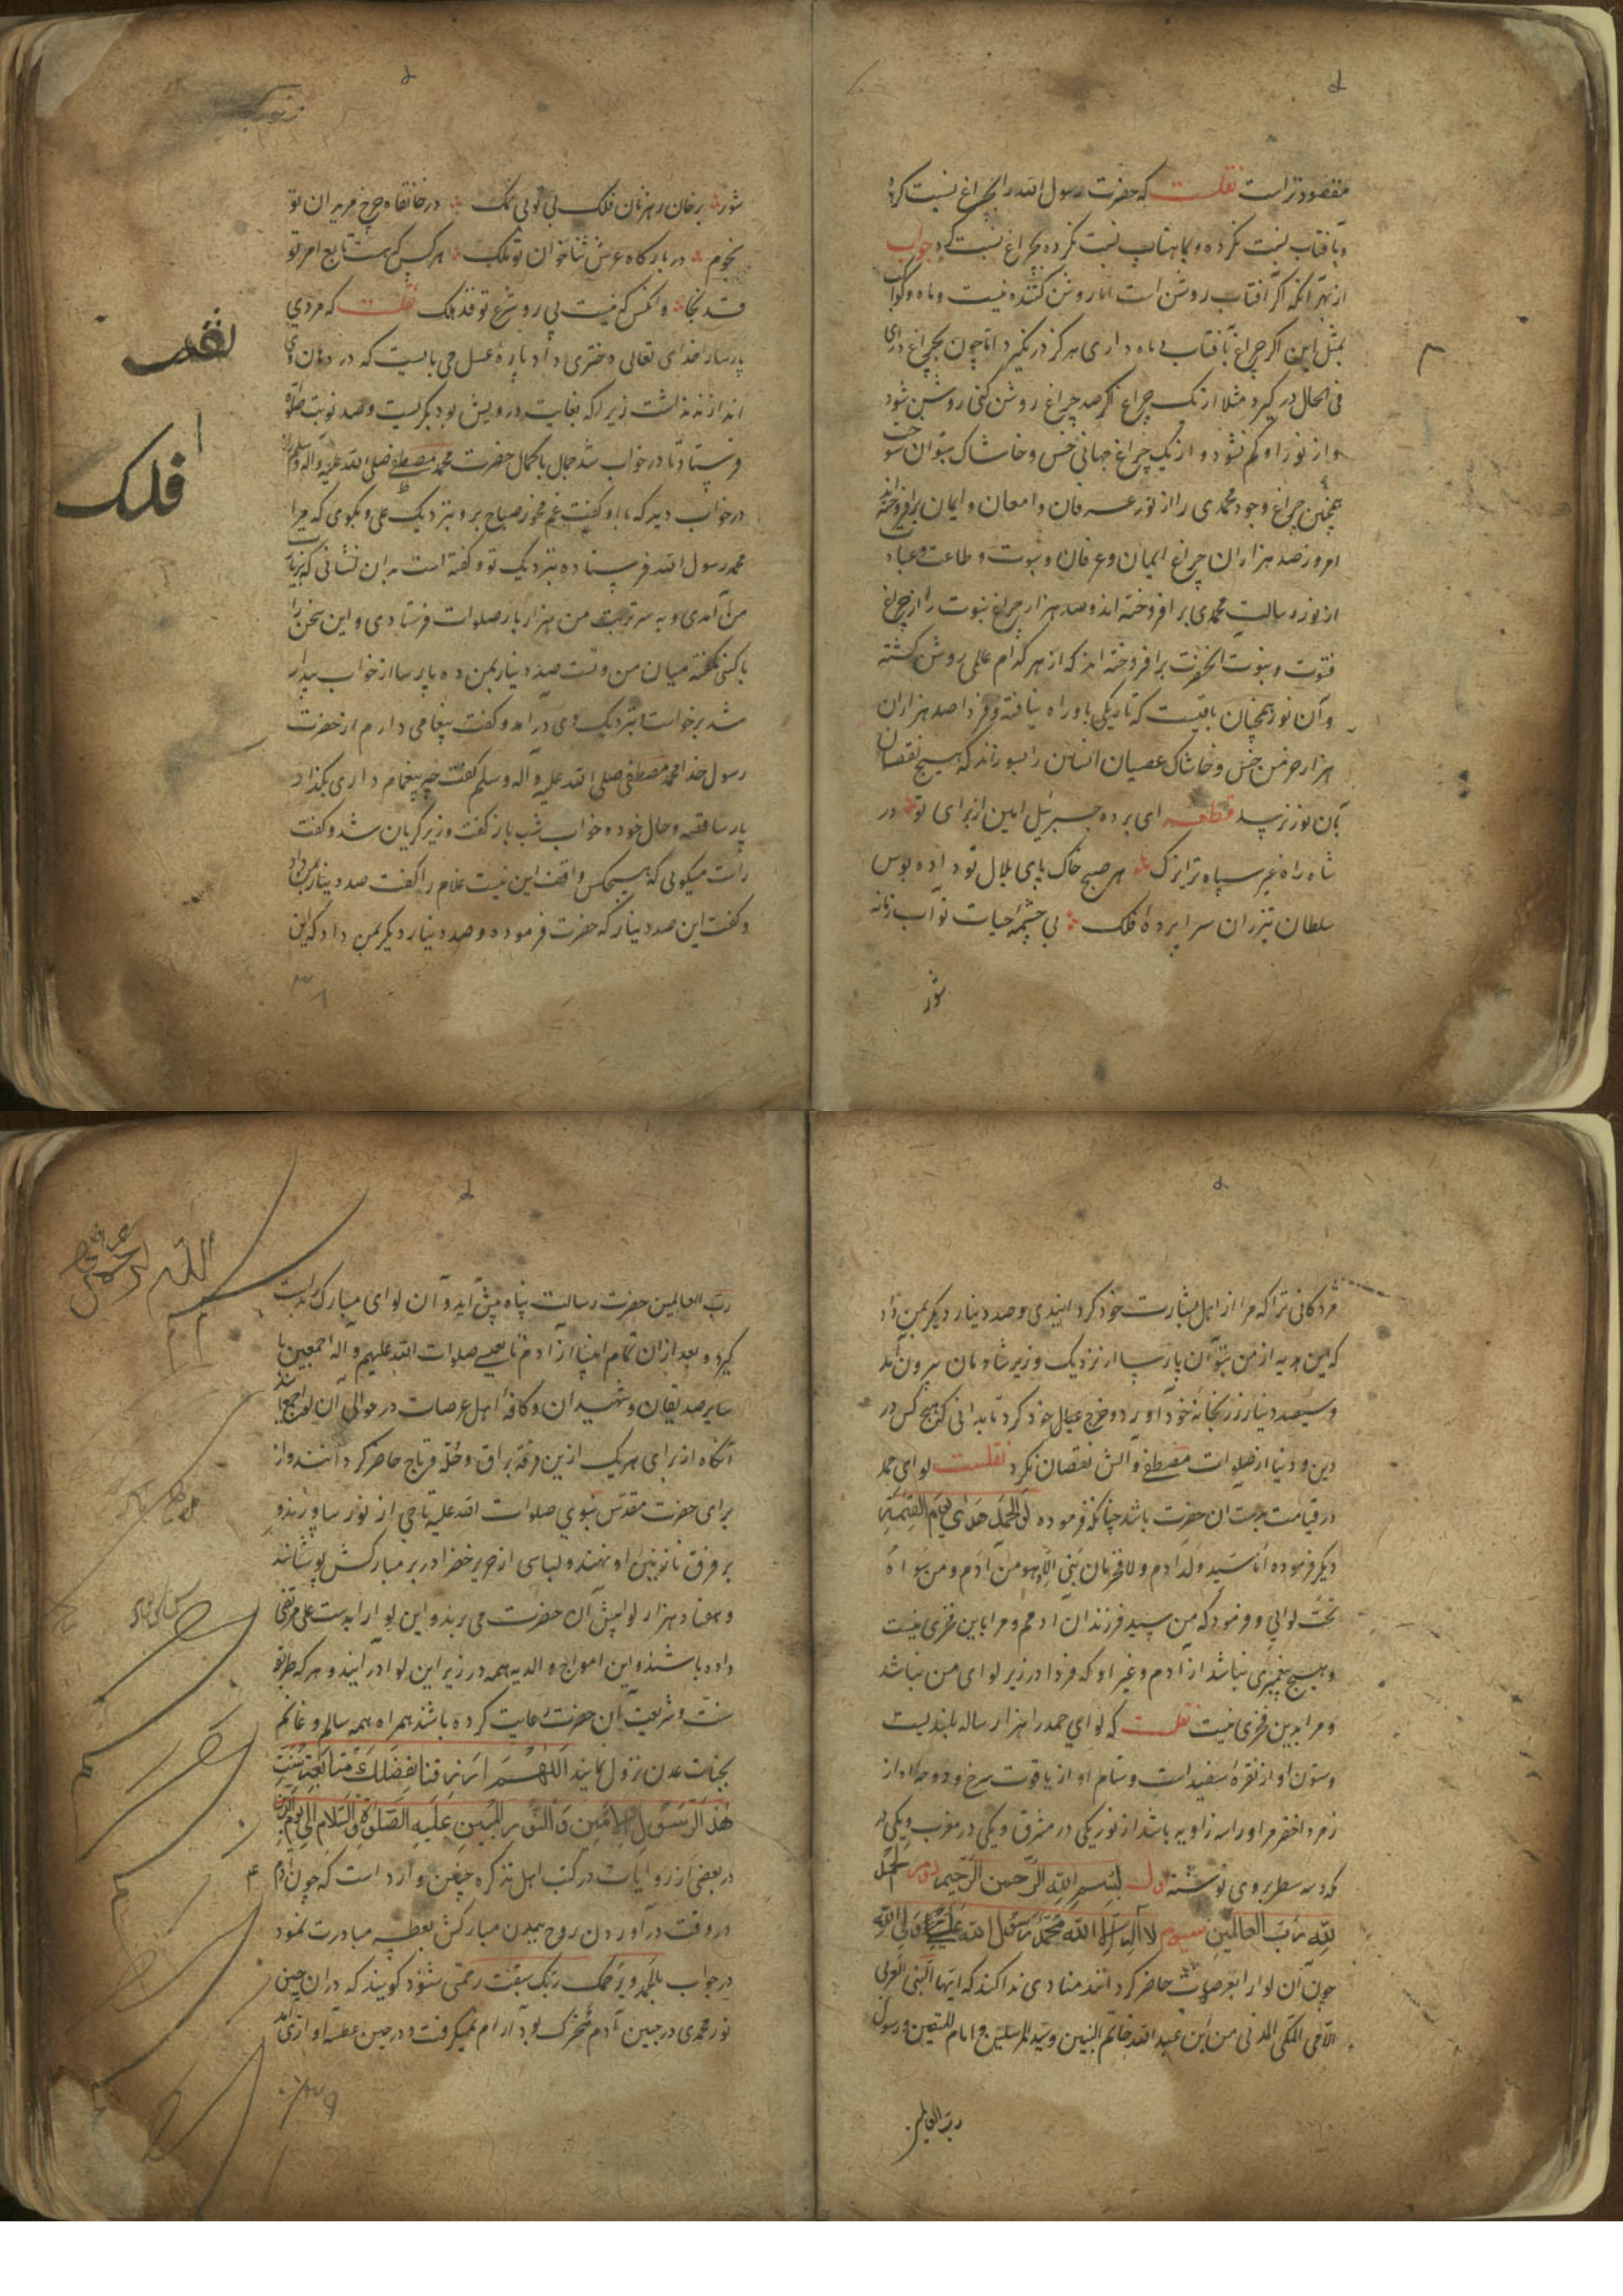 مقصود تر است نقلست که حضرت رسول الله را بچراغ نسبت کرده
و بآفتاب نسبت نکرده و بماهتاب نسبت نکرده بچراغ نسبت کرد جواب
از بهر آنکه اگر آفتاب روشن است اما روشن کننده نیست و ماه و کواکب
بمثل این اگر چراغ بآفتاب یا ماه داری هرگز در نگیرد اما چون بچراغ داری
فی الحال در گیرد مثلا از یک چراغ اگر صد چراغ روشن کنی روشن شود
و از نور او کم نشود و از یک چراغ جهانی خس و خاشاک بتوان سوخت
همچنین چراغ وجود محمدی را از نور عرفان و امعان و ایمان برافروخته اند
امروز صد هزاران چراغ ایمان و عرفان و نبوت و طاعت و عبادت
از نور رسالت محمدی برافروخته اند و صد هزار چراغ نبوت را از چراغ
فتوت و نبوت انحضرت برافروخته اند که از هر کدام عالمی روشن گشته
و آن نور همچنان باقیست که تاریکی باو راه نیافته و فردا صد هزاران
هزار خرمن خس و خاشاک عصیان انسان را بسوزاند که هیچ نقصان
بآن نور نرسد قطعه ای برده جبرئیل امین از برای تو در
شاه راه غیر سپاه ترا یزک هر صبح خاک پای بلال تو داده بوس
سلطان تیزران سراپرده فلک بی چشمه حیات تو آب زمانه
شور
شور بر خان رهزنان فلک بی تو بی نمک در خانقاه چرخ مریدان تو
نجوم در بارکاه عرش ثناخوان تو ملک هر کس که هست تابع امر تو
قد نجا وانکس که نیست پی رو شرع تو قد هلک نقلست که مردی
پارسا را خدای تعالی دختری داد پاره عسل می بایست که در دهان وی
اندازند نداشت زیرا که بغایت درویش بود بگریست و صد نوبت صلوة
فرستاد تا در خواب شد جمال با کمال حضرت محمد مصطفی صلی الله علیه و آله وسلم را
در خواب دید که با او کفت غم مخور صباح برو بنزدیک علی و بکوی که مرا
محمد رسول الله فرستاده بنزدیک تو و کفته است بدان نشانی که بزیارت
من آمدی و به سر تربت من هزار بار صلوات فرستادی و این سخن را
با کسی نکفته میان من و تست صد دینار بمن ده پارسا از خواب بیدار
شد برخواست بنزدیک وی در آمد و کفت پیغامی دارم از حضرت
رسول خدا محمد مصطفی صلی الله علیه و آله وسلم کفت چه پیغام داری بگذار
پارسا قصه و حال خود و خواب شب باز کفت وزیر گریان شد و کفت
راست میکویی که هیچکس واقف این نیست غلام را کفت صد دینار بمن داد
و کفت این صد دینار که حضرت فرموده و صد دینار دیگر بمن داد که این
نقد
فلک
مژدکانی ترا که مرا از اهل بشارت خود کردانیدی و صد دینار دیگر بمن داد
که این هدیه از من بستان پارسا از نزدیک وزیر شادمان بیرون آمد
و سیصد دینار زر بخانه خود آورد و خرج عیال خود کرد تا بدانی که هیچ کس در
دین و دنیا از صلوات مصطفی و آلش نقصان نکرد نقلست لوای حمد
در قیامت بدست ان حضرت باشد چنانکه فرموده لواء الحمد بیدی یوم القیمة
دیگر فرموده انا سید ولد ادم ولا فخر ما من نبی الا وهو من آدم ومن سواه
تحت لوائی و فرمود که من سید فرزندان ادمم و مرا باین فخری نیست
و هیچ پیغمبری نباشد از آدم و غیر او که فردا در زیر لوای من نباشد
و مرا بدین فخری نیست نقلست که لوای حمد را هزار ساله بلندیست
و ستون او از نقره سفید است و تمام او از یاقوت سرخ و
زمرد اخضر مر او را سه زاویه باشد از نور یکی در مشرق و یکی در مغرب و یکی
که سه سطر بر وی نوشته اول بسم الله الرحمن الرحیم دوم الحمد
لله رب العالمین سیوم لا اله الا الله محمد رسول الله علی ولی الله
چون آن لوا را بعرصات حاضر کردانند منادی ندا کند که ایها النبی العربی
الامی المکی المدنی من ابن عبد الله خاتم النبیین و سید المرسلین و امام المتقین و رسول
رب العالمین
رب العالمین حضرت رسالت پناه پیش آید و آن لوای مبارک بدست
گیرد و بعد از ان تمام انبیا از آدم تا عیسی صلوات الله علیهم و آله اجمعین با
سایر صدیقان و شهیدان و کافه اهل عرصات در حوالی آن لوا جمع آیند
آنگاه از برای هر یک ازین فرقه براق و حله و تاج حاضر کردانند و از
برای حضرت مقدس نبوی صلوات الله علیه تاجی از نور بیاورند و
بر فرق نازنین او نهند و لباسی از حریر خضرا در بر مبارکش پوشانند
و هفتاد هزار لوا پیش آن حضرت می برند و این لوا را بدست علی مرتضی
داده باشند و این امواج و الویه همه در زیر این لوا در آیند و هر که طریق
سنت و شریعت آن حضرت رعایت کرده باشند همراه همه سالم و غانم
بجنات عدن نزول نمایند اللهم ارزقنا بفضلک متابعة سنت
هذا الرسول الامین والنور المبین علیه الصلوة والسلام الی یوم الدین
در بعضی از روایات در کتب اهل تذکره چنین وارد است که چون آدم ع
در وقت در آوردن روح ببدن مبارکش بعطسه مبادرت نمود
در جواب بالحمد و یرحمک ربک سبقت رحمتی شنود کویند که در ان حین
نور محمدی در جبین آدم متحرک بود آرام نمیگرفت و در حین عطسه آوازی آمد
الله